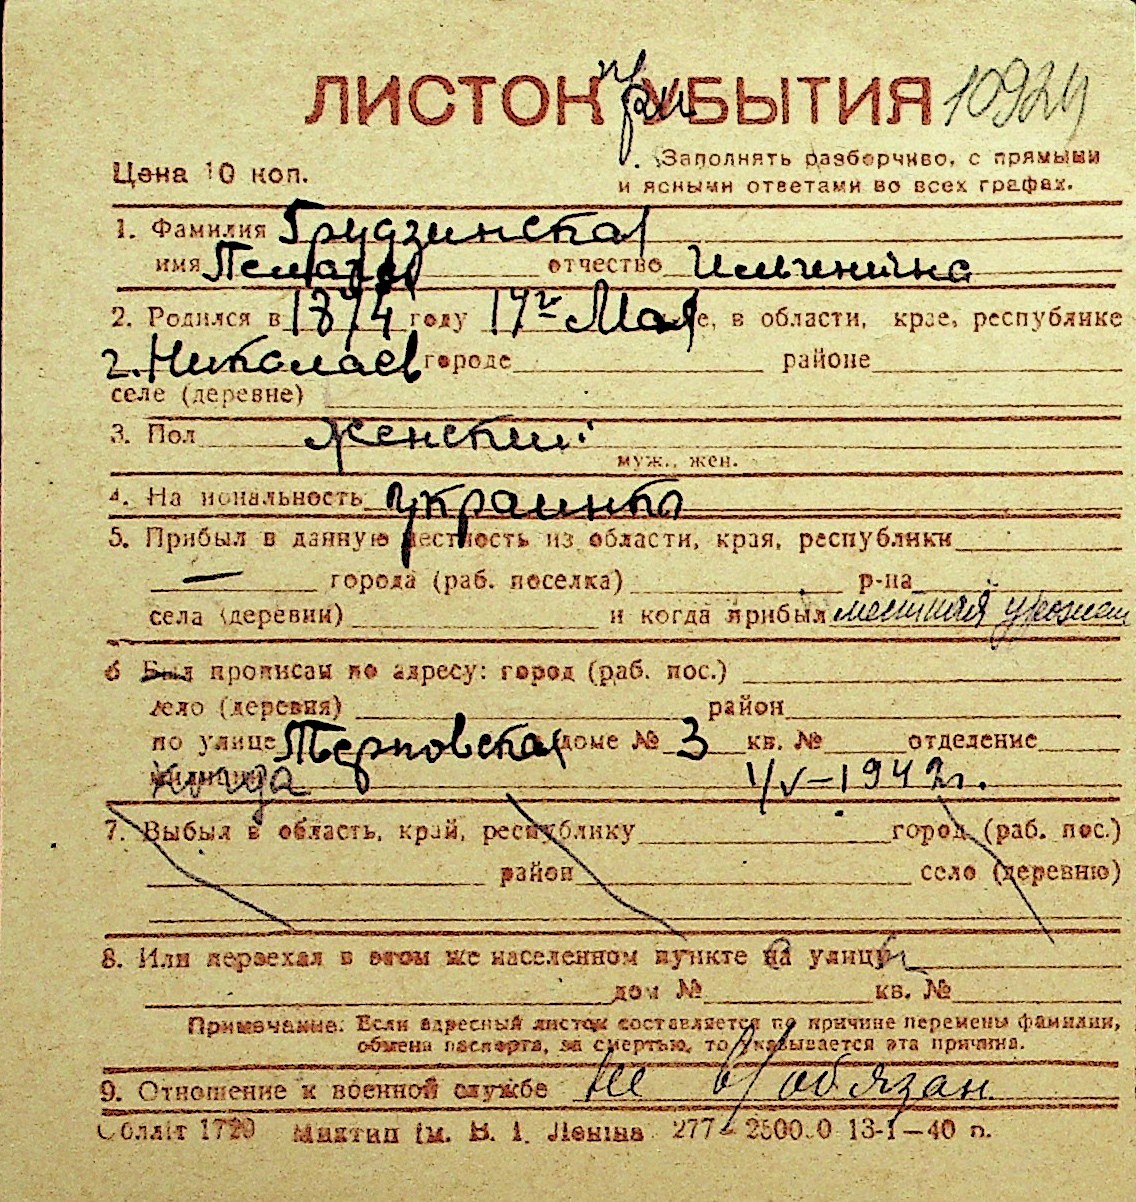 ЛИСТОК при УБЫТИЯ 10924
Цена 10 коп.
Заполнять разборчиво, с прямыми
и ясными ответами во всех графах.
1. Фамилия Грудзинская
имя Пелагея отчество Ильинична
2. Родился в 1874 году 17го Мая е, в области, крае, республике
г. Николаев городе районе
селе (деревне)
3. Пол женский
муж., жен.
4. На иональность украинка
5. Прибыл в данную местность из области, края, республики
— города (раб. поселка) р-на
села (деревни) и когда прибыл местный урожен
6 Был прописан по адресу: город (раб. пос.)
село (деревня) район
по улице Терновская доме № 3 кв. № отделение
когда 1/V–1942г.
7. Выбыл в область, край, республику город (раб. пос.)
район село (деревню)
8. Или переехал в этом же населенном пункте на улицу
дом № кв. №
Примечание: Если адресный листок составляется по причине перемены фамилии,
обмена паспорта, за смертью, то указывается эта причина.
9. Отношение к военной службе не в/обязан
Обллiт 1720 Миктип iм. В. I. Ленiна 277–2500.0 13-I—40 р.